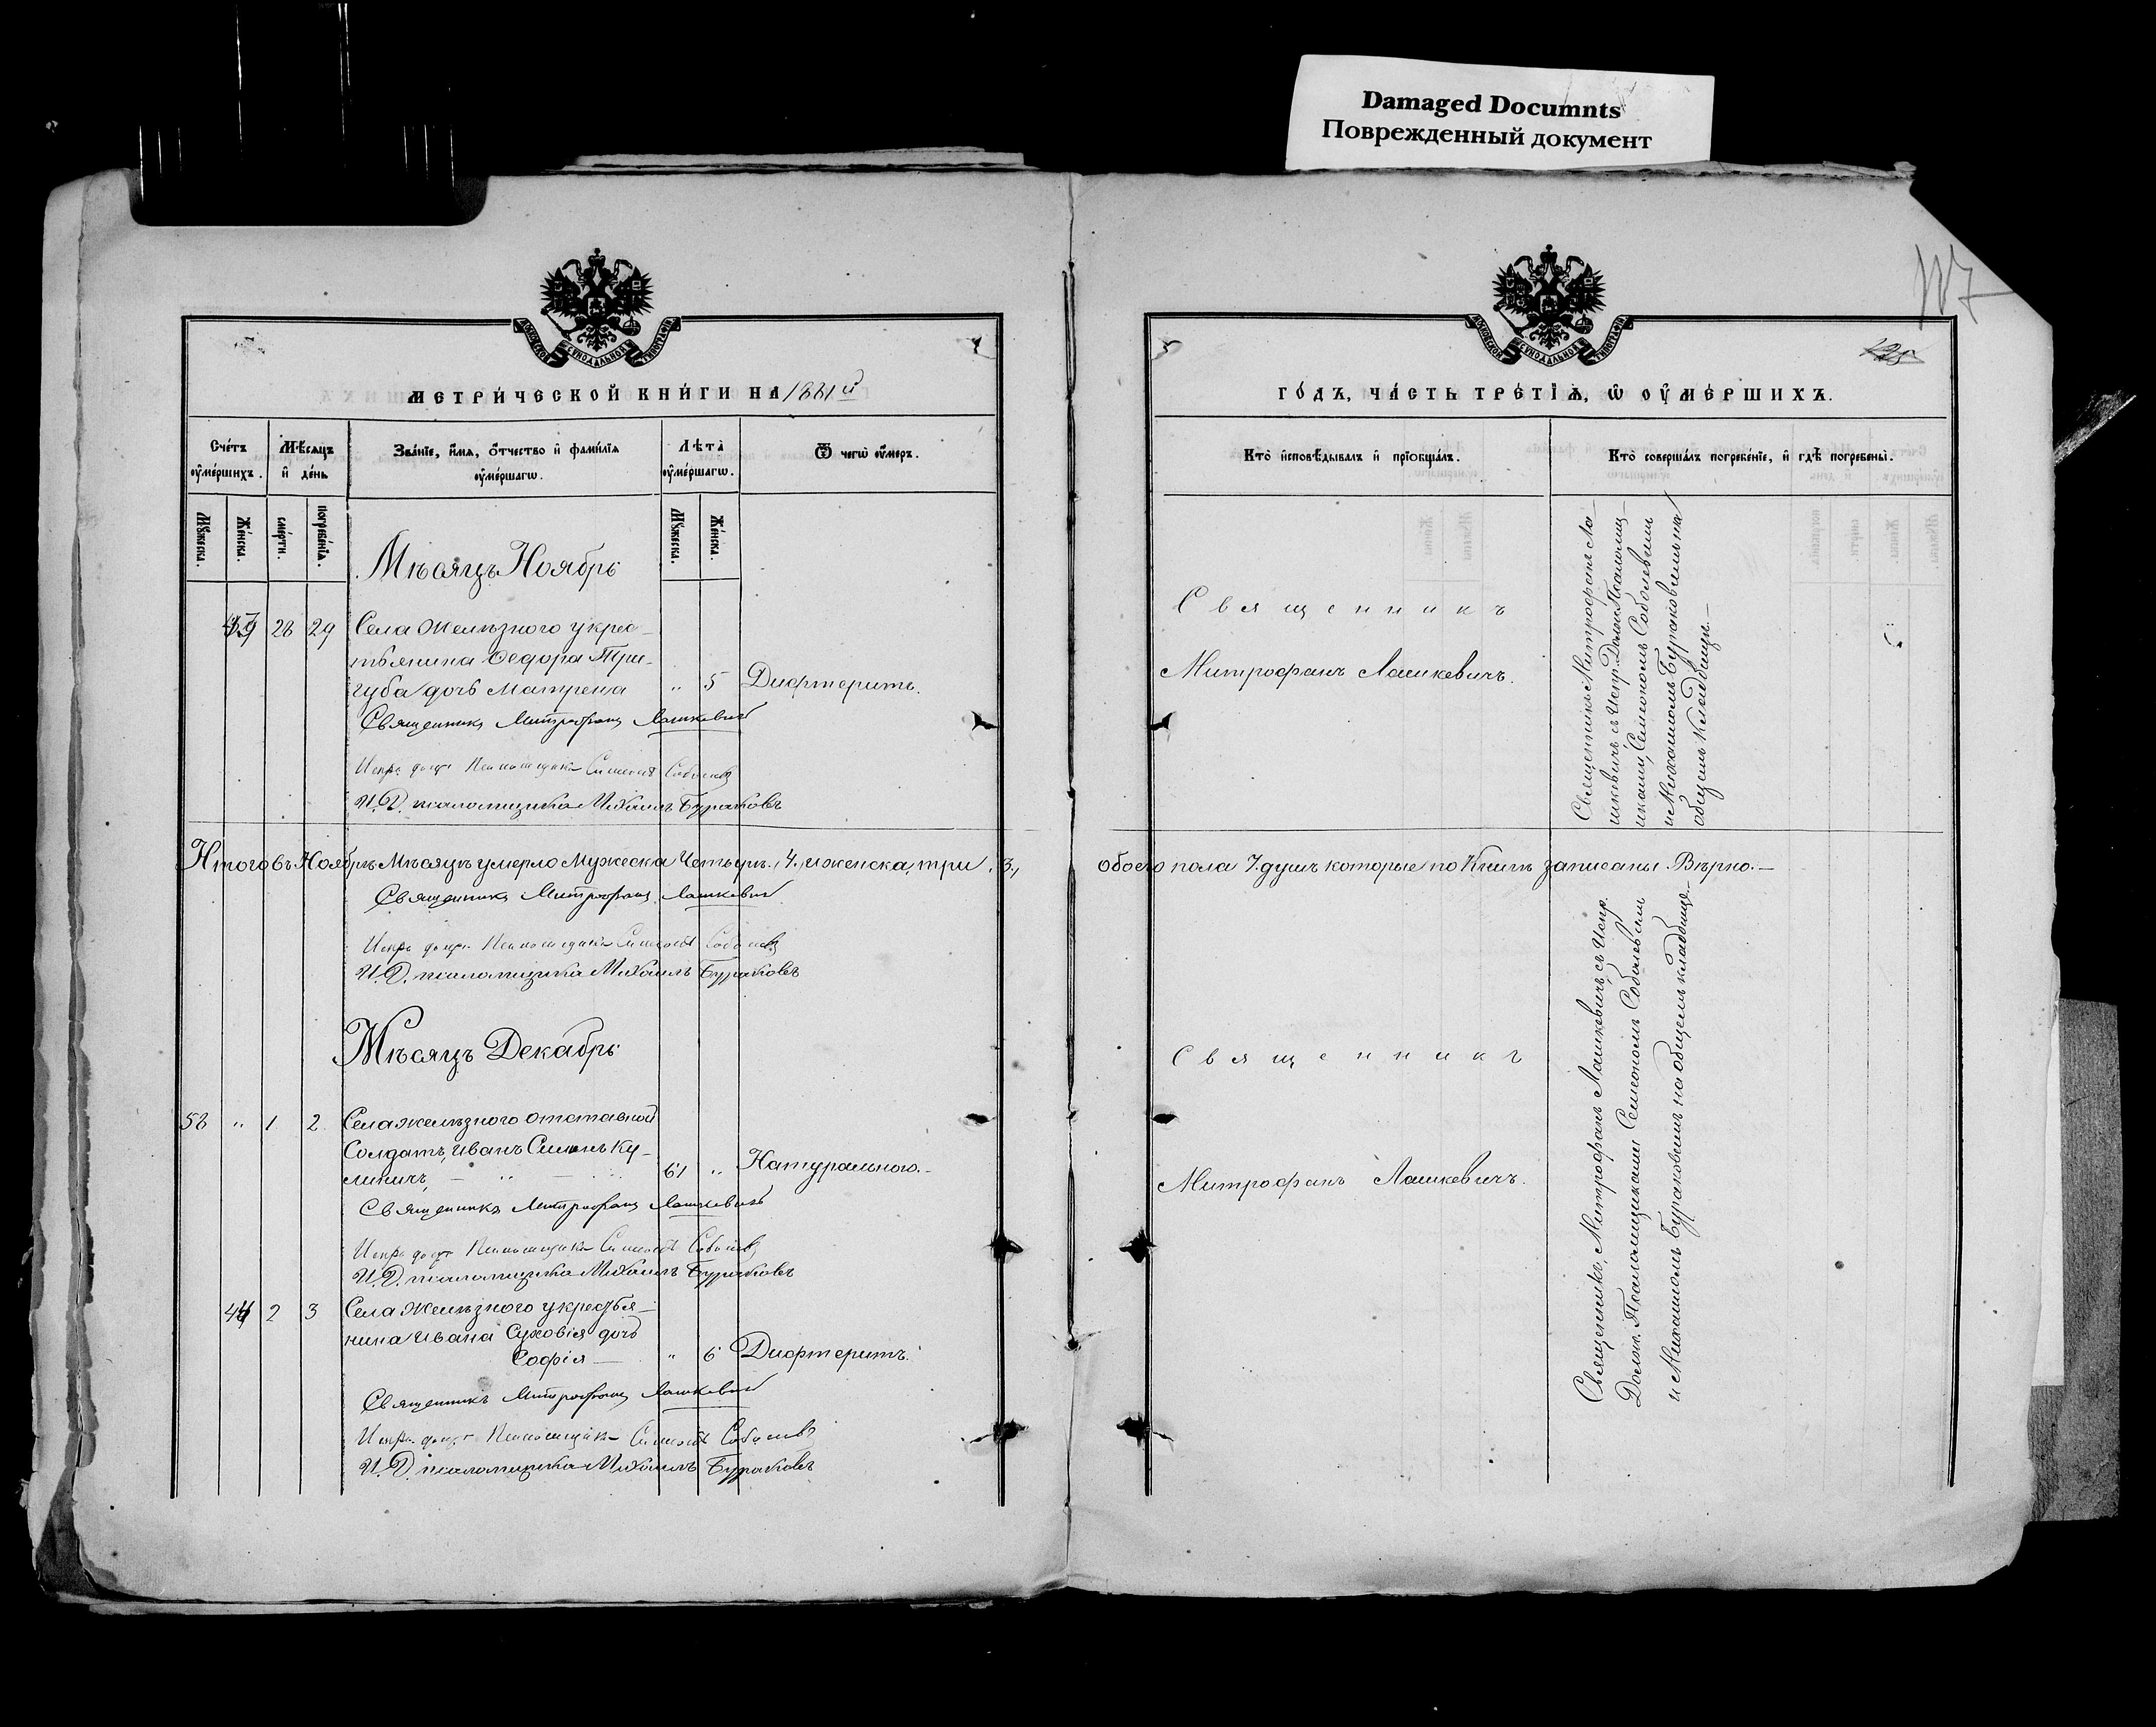 Damaged Documnts
Поврежденный документ
117
125
МОСКОВСКОЙ СѴНОДАЛЬНОЙ ТИПОГРАФІИ
МЕТРИ́ЧЕСКОЙ КНИ́ГИ НА 1881й
Сче́тъ ᲂу҆ме́ршихъ.
Мѣ́сяцъ и҆ де́нь
Зва́нїе, и҆́мѧ, ѻ҆́тчество и҆ фами́лїѧ ᲂу҆ме́ршагѡ.
Лѣ́та ᲂу҆ме́ршагѡ.
Ѿ чегѡ̀ ᲂу҆́меръ.
Мꙋ́жеска.
Же́нска.
сме́рти.
погребе́нїѧ.
Мꙋ́жеска.
Же́нска.
Мѣсяцъ Ноябрь
28 29 Села Желѣзного у крес-
тьянина Ѳедора Три-
губа дочь Матрена " 5 Дифтеритъ.
Священникъ Митрофанъ Лашкевичъ
Испр. долж. Псаломщика Симеонъ Соболевъ
И. Д. псаломщика Михаилъ Бураковъ
Итого въ Ноябрѣ Мѣсяцѣ умерло Мужеска Четыре, 4, и женска, три, 3,
Священникъ Митрофанъ Лашкевичъ
Испр. долж. Псаломщика Симеонъ Соболевъ
И. Д. псаломщика Михаилъ Бураковъ
Мѣсяцъ Декабрь
58 " 1 2 Села Желѣзного отставной
Солдатъ, Иванъ Ку-
личъ, 61 " Натурального.-
Священникъ Митрофанъ Лашкевичъ
Испр. долж. Псаломщика Симеонъ Соболевъ
И. Д. псаломщика Михаилъ Бураковъ
44 2 3 Села Желѣзного у крестья-
нина Ивана Суховія дочь
Софія - " 6 Дифтеритъ.
Священникъ Митрофанъ Лашкевичъ
Испр. долж. Псаломщика Симеонъ Соболевъ
И. Д. псаломщика Михаилъ Бураковъ
МОСКОВСКОЙ СѴНОДАЛЬНОЙ ТИПОГРАФІИ
ГО́ДЪ, ЧА́СТЬ ТРЕ́ТЇѦ, Ѡ ОУ҆МЕ́РШИХЪ.
Кто̀ и҆сповѣ́дывалъ и҆ прїѡбща́лъ.
Кто̀ соверша́лъ погребе́нїе, и҆ гдѣ̀ погребены̀.
Священникъ
Митрофанъ Лашкевичъ.
Священникъ Митрофанъ Ла-
шкевичъ съ Испр. Долж. Псаломщ-
иками, Семеономъ Соболевымъ
и Михаиломъ Бураковымъ на
общемъ кладбищѣ.-
обоего пола 7. душъ которые по Книгѣ записаны. Вѣрно.-
Священникъ
Митрофанъ Лашкевичъ.
Священникъ, Митрофанъ Лашкевичъ, съ Испр.
Долж. Псаломщиками Семеономъ Соболевымъ
и Михаиломъ Бураковымъ на общемъ кладбищѣ.-